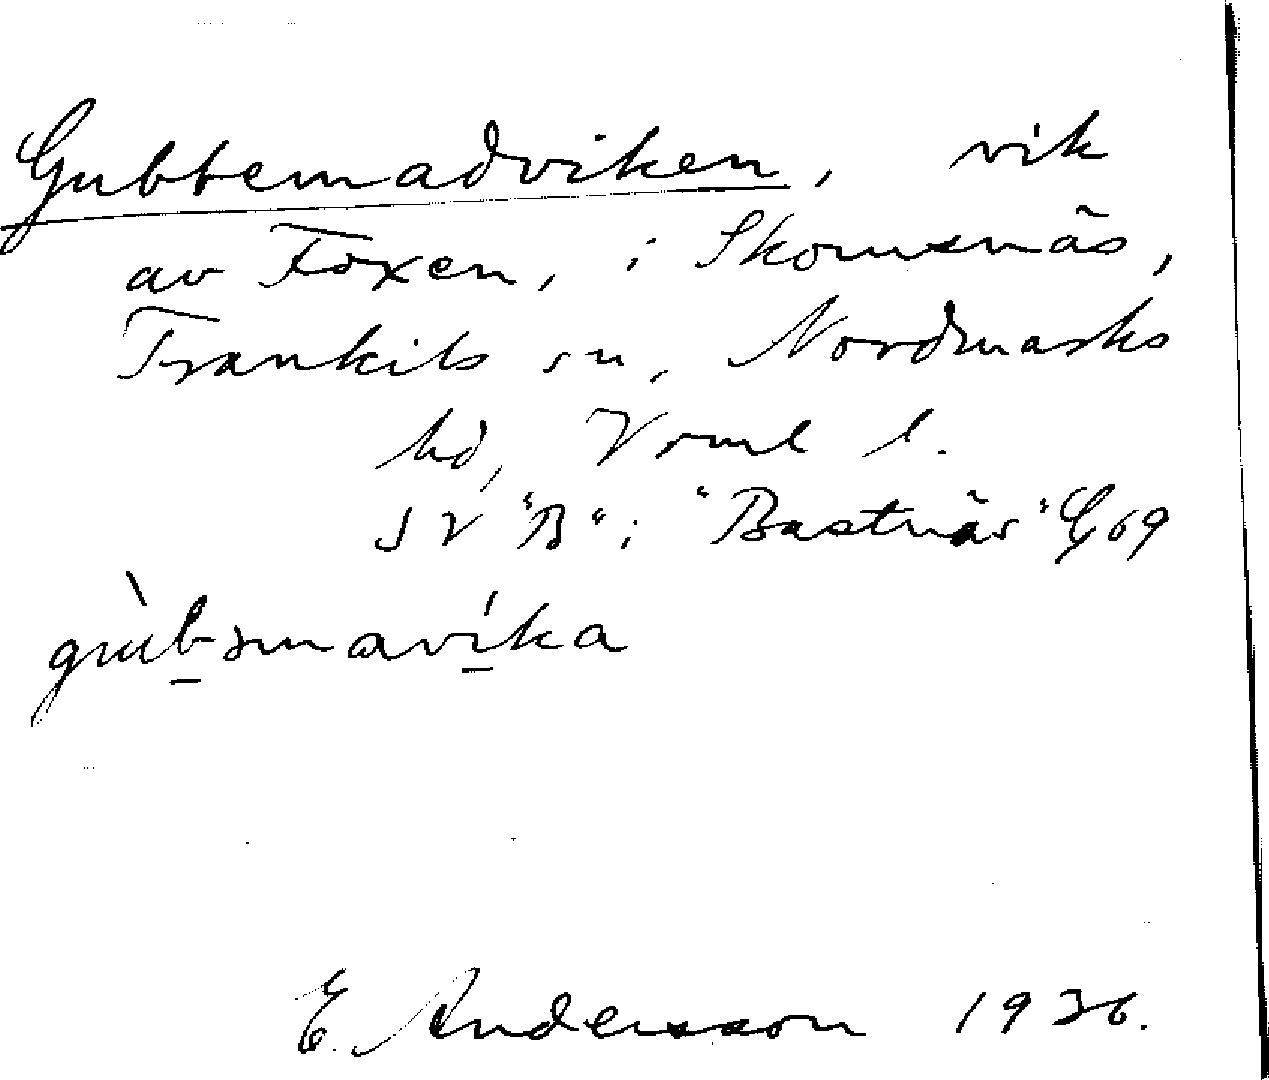 Gubbemadviken, vik
av Foxen, i Skomsnäs,
Trankils sn, Nordmarks
hd, Vrml l.
SV "B" i "Bastnäs" G 69
E. Andersson 1936.